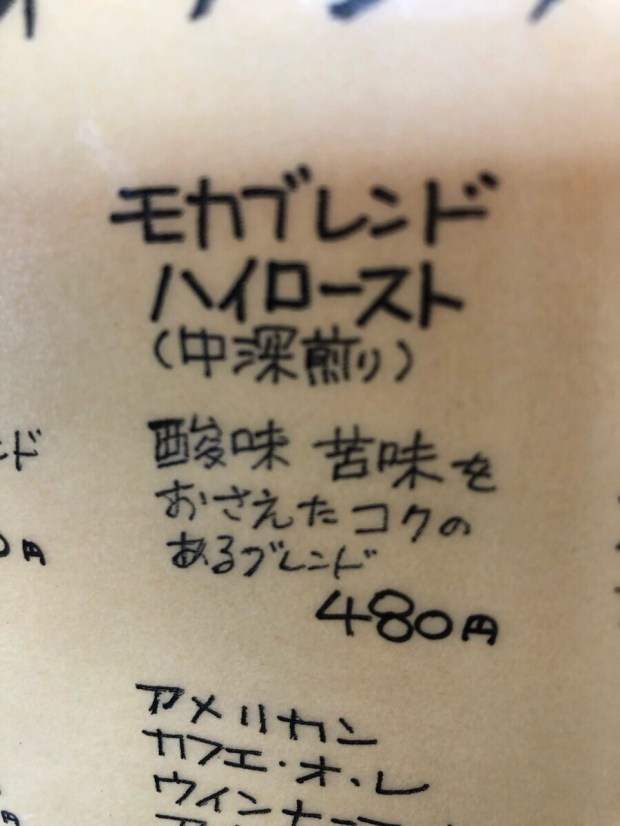 モカブレンド
ハイロースト
(中深煎り)
酸味 苦味を
おさえたコクの
あるブレンド
480円
アメリカン
カフェ・オ・レ
ウィンナー